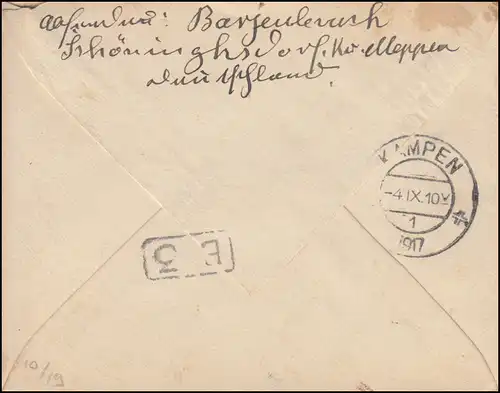 Absender: Barjenbruch
Schöninghsdorf. Kr. Meppen
Deutschland.
KAMPEN
-4.IX.10V
1
1917
E 3
10/19